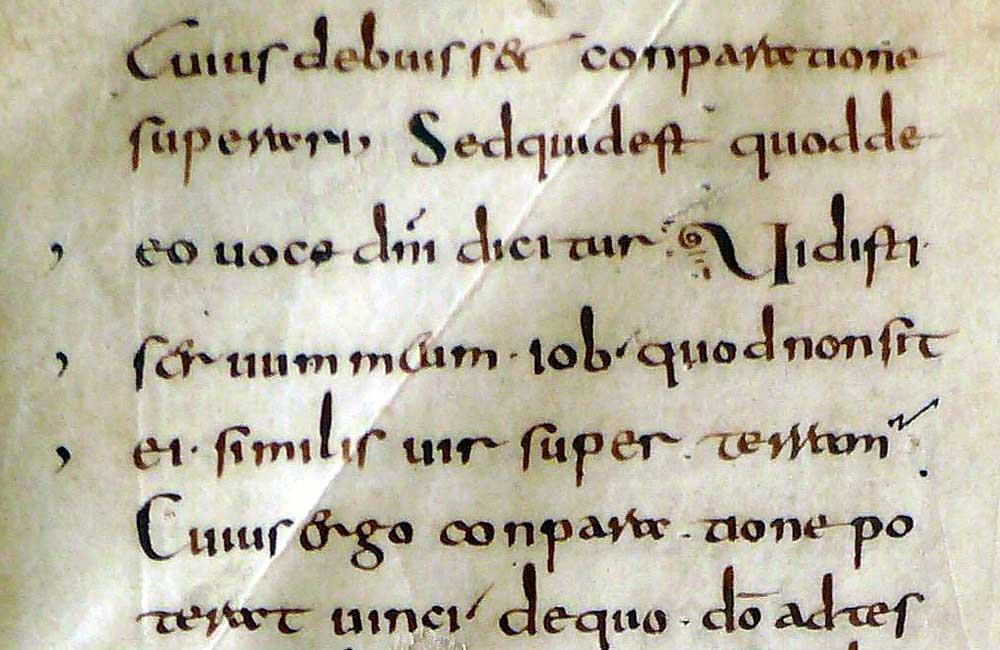 Cuius debuiss& conparatione
superari, Sedquidest quodde
, eo uoce dn̄i dicitur Uidisti·
, seruum meum · iob · quodnonsit
, ei · similis uir super terram
Cuius ergo conpara · tione po
terat uinci dequo · dō adtes